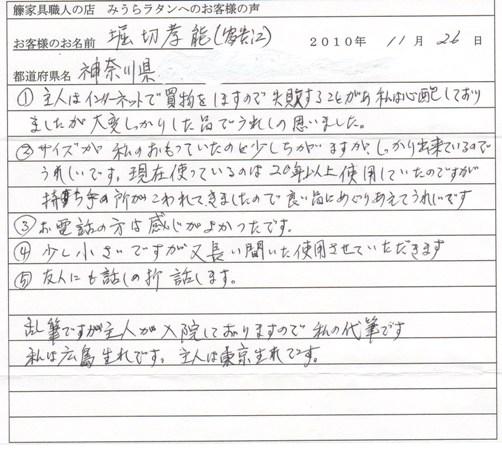 籐家具職人の店 みうらラタンへのお客様の声
お客様のお名前 堀切孝能 2010年 11月 26日
都道府県名 神奈川県
① 主人はインターネットで買物をしますので失敗することがあり私は心配しており
ましたが大変しっかりした品でうれしく思いました。
② サイズが私のおもっていたのと少しちがいますが、しっかり出来ているので
うれしいです。現在使っているのは20年以上使用していたのですが
持ち手の所がこわれてきましたので良い品にめぐりあえてうれしいです
③ お電話の方は感じがよかったです。
④ 少し小さいですが又長い間使用させていただきます
⑤ 友人にも話しの折話します。
乱筆ですが主人が入院しておりますので私の代筆です
私は広島生れです。主人は東京生れです。